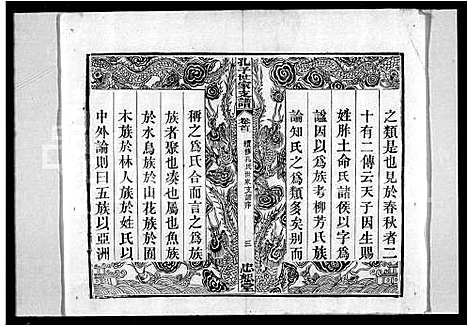 之類是也見於春秋者二
十有二傳云天子因生賜
姓胙土命氏諸侯以字為
謚因以為族考柳芳氏族
論知氏之為類多矣別而
孔子世家支譜
卷首
續修孔氏世家支譜序
三
稱之為氏合而言之為族
族者聚也湊也屬也魚族
於水鳥族於山花族於園
木族於林人族於姓氏以
中外論則曰五族以亞洲